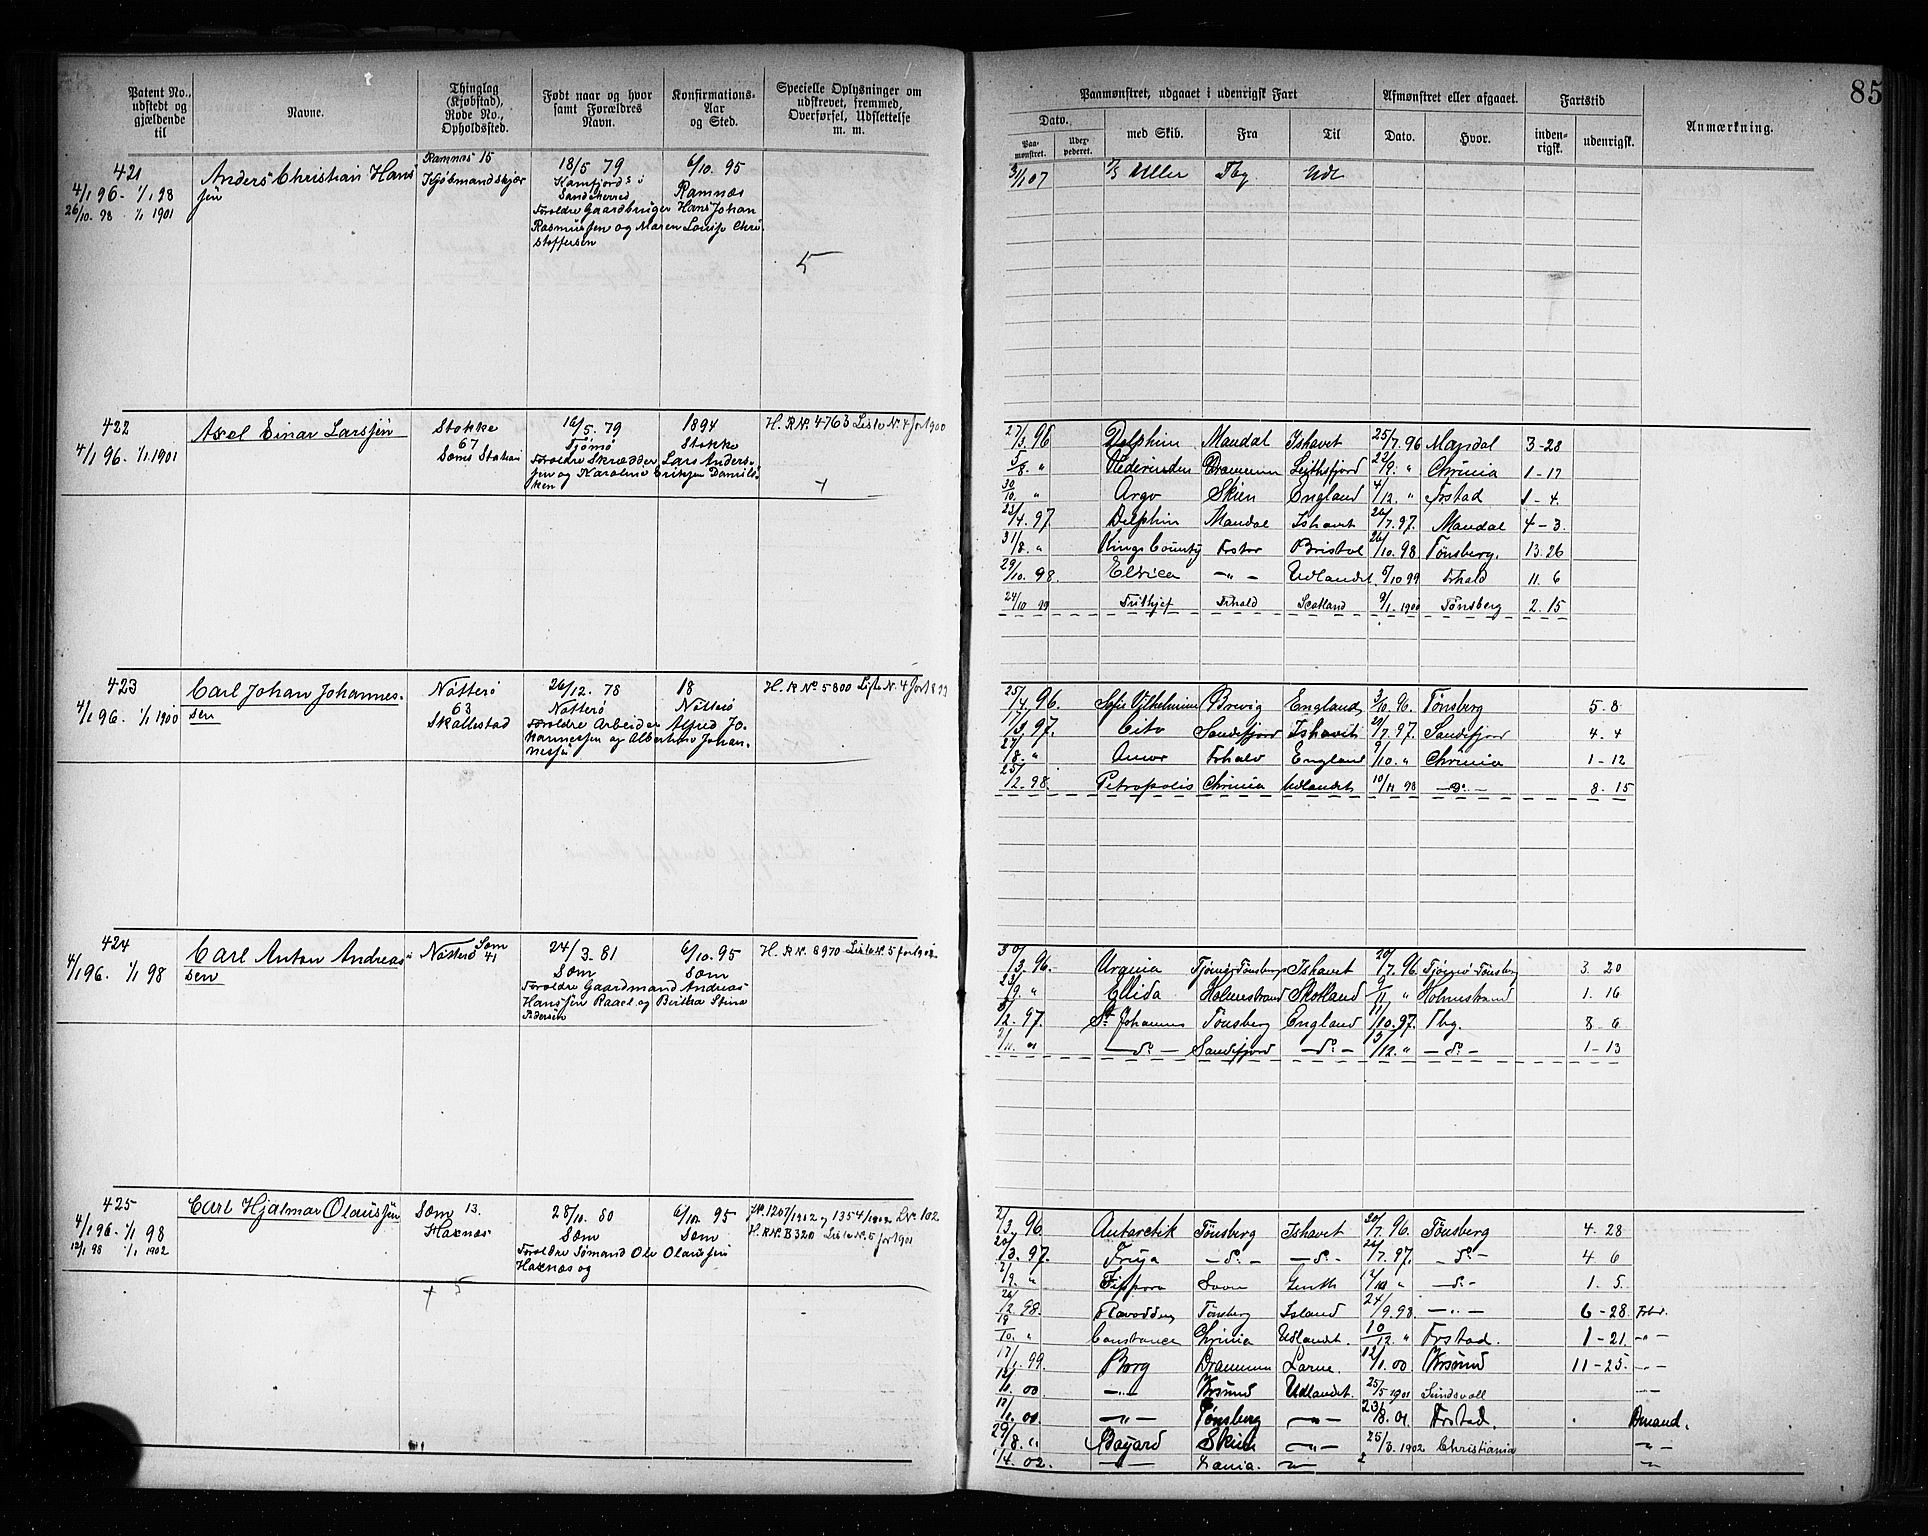 85
Patent No., udstedt og gjældende til
Navne.
Thinglag (Kjøbstad), Rode No., Opholdssted.
Født naar og hvor samt Forældres Navn.
Konfirmations-Aar og Sted.
Specielle Oplysninger om udskrevet, fremmed, Overførsel, Udslettelse m. m.
Paamønstret, udgaaet i udenrigsk Fart
Afmønstret eller afgaaet.
Fartstid
Anmærkning.
Dato.
med Skib.
Fra
Til
Dato.
Hvor.
inden-rigsk.
udenrigsk.
Paa-mønstret.
421
4/1 96. 1/1 98
26/10. 98 . 1/1 1901
Anders Christian Hans
sen
Ramnæs 15
Kjøbmandskjær
18/5 79
Sandeherred
Rasmussen og Maren Louise Chri
stoffersen
6/10. 95
Ramnæs
Hans Johan
5
3/1 07 Uller Tbg Udl
422
4/1 96. 1/1 1901
Axel Einar Larssen
Stokke
67
16/5. 79
Tjømø
Foreldre Skrædder Lars Anders-
sen og Karoline Eriksen Daniels
ken
1894
Stokke
H. R No. 4763 Liste No. 4 for 1900
27/3. 96 Delphin Mandal Ishavet 25/7. 96 Mandal 3-28
5/8. " Drammen 22/9. " Chrinia 1-17
30/10. " Argo Skien England 4/12. " Frstad 1-4
23/4. 97. Delphin Mandal Ishavet 26/7. 97. Mandal 4-3.
31/8. " Kings County Frstar Bristol 26/10. 98 Tønsberg. 13.26
29/10. 98 Ellrica -"- Udlandet 5/10 99 Frhald 11. 6
24/10 99 Frithjof Frhald Scotland 9/1. 1900 Tønsberg 2.15
423
4/1 96. 1/1 1900
Carl Johan Johannes-
sen
Nøtterø
63
Skallestad
26/12. 78
Nøtterø
Foreldre Arbeider Alfred Jo-
hannessen og Albertine Johan-
nessen
18
Nøtterø
H. R No. 5800 Liste No. 4 for 1899
25/4. 96. Sofie Vilhelmine Brevig England 3/6. 96. Tønsberg 5. 8
17/3. 97. Cito Sandefjord Ishavet 20/7. 97. Sandefjord 4. 4
27/8. " Amor Frhald England 9/10. " Chrinia 1-12
25/2. 98. Petropolis Chrinia Udlandet 10/11 98 -do- 8-15
424
4/1 96. 1/1 98
Carl Anton Andreas
sen
Nøtterø Sæm 41
24/3. 81
Sæm
Foreldre Gaardmand Andreas
Hanssen Raael og Berthe Stine
Pedersen
6/10. 95
Sæm
H. R No. 8970 Liste No. 5 for 1902
30/3. 96. Urania Tjømø Tønsberg Ishavet 20/7. 96 Tjømø Tønsberg 3. 20
23/9. " Ellida Holmestrand Skotland 9/11. " Holmestrand 1. 16
5/2. 97. St. Johannes Tønsberg England 11/10. 97. Tbg. 8-6
2/11. " -do- Sandefjord -do- 13/12. " -do- 1-13
425
4/1 96. 1/1 98
12/1 98 1/1 1902
Carl Hjalmar Olaussen
Sæm 13.
Haxnæs
28/10. 80
Sæm
Foreldre Sømand Ole Olaussen
Haxnæs og
6/10 95
Sæm
No. 1207/1902 og 1354/1902 L No 102
H. R No. B 320 Liste No. 5 for 1901
2/3. 96 Antarctik Tønsberg Ishavet 30/7. 96. Tønsberg 4. 28
20/3. 97. Freya -do- -do- 26/7. 97. -do- 4 6
2/9. " Zippora Leith 14/10 " -do- 1. 5.
26/2. 98. Tønsberg Island 24/9. 98. -"- 6-28
18/10. " Constance Chrinia Udlandet. 10/12. " Frstad. 1-21. -"-
17/1. 99. Borg Drammen Larne. 12/1. 00 Krsund 11-25. -"-
12/1. 00 -"- Krsund Udlandet. 25/5 1901 Sundsvall -"-
-"- Tønsberg -"- 23/8. 01. Frstad. Dmand.
29/8. " Bayard Skien -"- 25/3. 1902 Christiania -"-
1/4. 02. -"- Dania. -"- 2 -"-